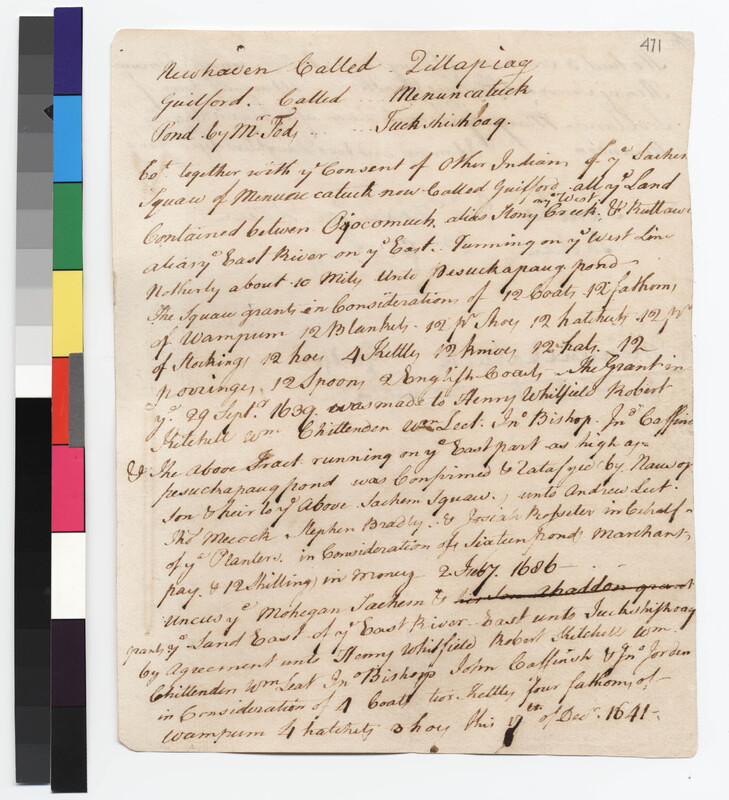 471
Newhaven Called Qillapiag
Guilford .. Called .. Menuncatuck
Pond by Mr. Tods .. .. Tuckshishoag.
together with ye Consent of Other Indians of ye Sachem
Squaw of Menuncatuck now Called Guilford, all ye Land
on ye West
Contained between alias Stony Creek, &
alias ye East River on ye East .. Running on ye West Line
Notherly about 10 Miles Unto pesuckapaug pond
The Squaw grants in Considerations of 12 Coats 12 fathoms
of Wampum 12 Blankets 12 pr Shoes 12 hatchets 12 pr
of Stockings 12 hoes 4 Kettles 12 knives 12 hats. 12
porringes, 12 Spoons 2 English Coats The Grant in
ye 29 Septr. 1639. was made to Henry Whitfield Robert
Kitchell Wm Chillenden Wm Leet. Jno Bishop. Jno Caffinc
& The Above Tract running on ye East part as high as
pesuckapaug pond was Confirmed & by
Son & heir to ye Above Sachem Squaw, unto Andrew Leet.
Thos Mecock Stephen Bradly .. & Josiah Rosseter in behalf
of ye Planters. in Consideration of Sixteen ponds Marchant
pay. & 12 Shillings in money 2 1686
Uncus ye Mohegan Sachem & his Son Ahaddon grant
grants ye Land East of ye East River East unto Tuckshishoag
by Agreement unto Henry Whitfield Robert Kitchel Wm.
Chillenden Wm Leat Jno Bishop John Caffinch & Jno Jorden
in Consideration of 4 Coats two Kettles four fathoms of
Wampum 4 hatchets 3 hoes this 17th of Decr. 1641